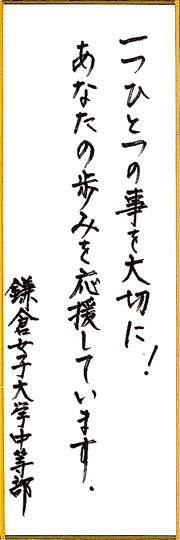 一つひとつの事を大切に！
あなたの歩みを応援しています．
鎌倉女子大学中等部